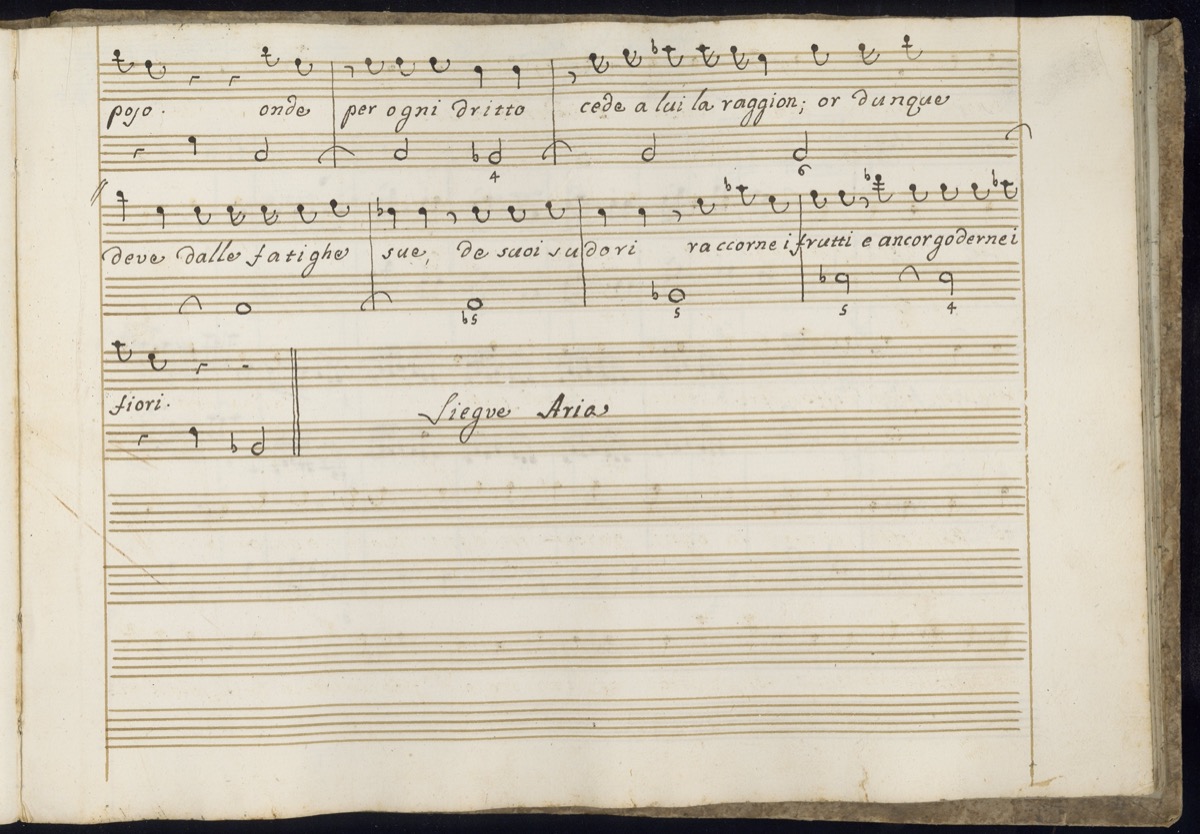 poso. onde per ogni dritto cede a lui la raggion; or dunque
4 6
deve dalle fatighe sue, de suoi sudori raccorne i frutti e ancor godernei
b5 5 5 4
fiori. Siegue Aria